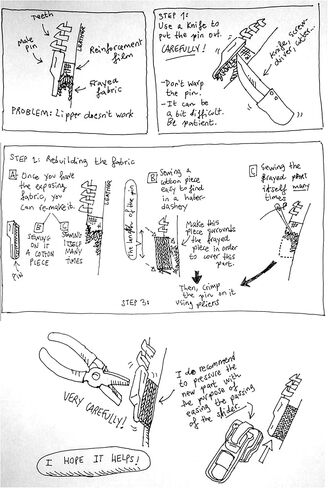 Teeth
Male
pin
LEATHER
Reinforcement
film
Frayed
fabric
PROBLEM: Zipper doesn't work
STEP 1:
Use a Knife to
put the pin out.
CAREFULLY!
Knife, screw-
driver, cutter...
-Don't warp
the pin.
-It can be
a bit difficult.
Be patient.
STEP 2: Rebuilding the fabric
A Once you have
the exposing
fabric, you
can remake it:
B
SEWING
ON IT
A COTTON
PIECE
C
SEWING
ITSELF
MANY
TIMES
PIN
LEATHER
The length of the pin
B Sewing a
cotton piece
easy to find
in a haber-
dashery
Make this
piece surrounds
the frayed
piece in order
to cover this
part.
C Sewing the
frayed part
itself many
times
Then, crimp
the pin on it
using pliers
STEP 3:
VERY CAREFULLY!
I do recommend
to pressure the
new part with
the purpose of
easing the passing
of the slider.
I HOPE IT HELPS!